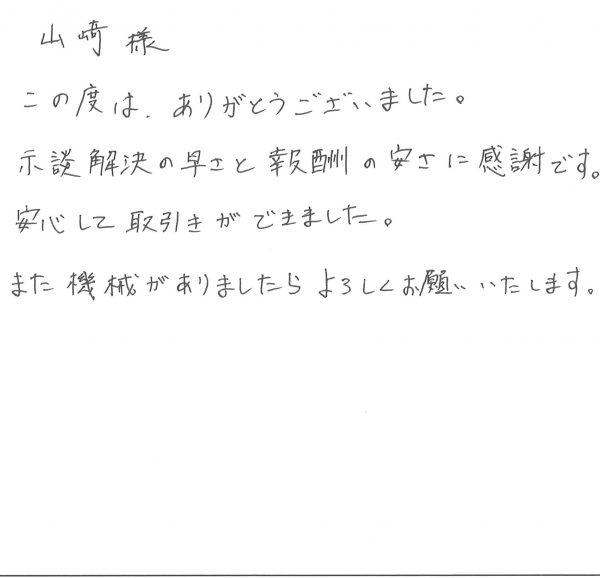 山﨑 様
この度は、ありがとうございました。
示談解決の早さと報酬の安さに感謝です。
安心して取引きができました。
また機械がありましたらよろしくお願いいたします。